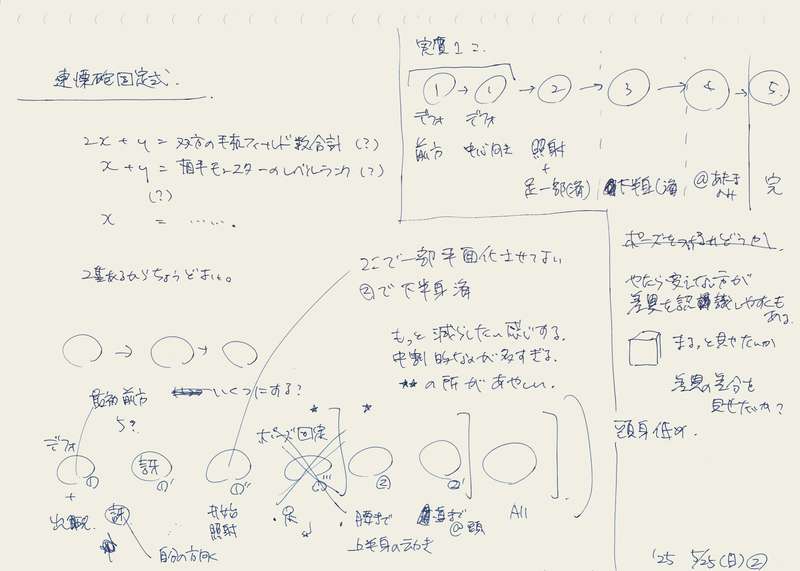 実質1こ
1 → 1 → 2 → 3 → 4 → 5
デフォ デフォ
前方 中心向き 照射 + 足一部(済) 下半身(済) @あたまのみ 完
連慄砲固定式.
2x + y = 双方の手札フィールド数合計 (?)
x + y = 相手モンスターのレベルランク (?)
(?)
x = …….
2条あるからちょうどよい。
ここで一部平面化させてよい
②で下半身済
もっと減らしたい感じする.
中割的なのが多すぎる.
★★の所があやしい.
○ → ○ + ○
最初前方 いくつにする?
5?
デフォ 訝 ポーズ固定 ★ ★
① ①' ①'' ①''' ② ②'
+
出現 訝 開始 照射 足 腰まで @頭 All
自分の方向く 上半身のみ動き
やたら変えない方が
差異を認識しやすくも
ある.
まるっと見せたいか
差異の差分を
見せたいか?
頭身低め.
'25 5/25(日)②